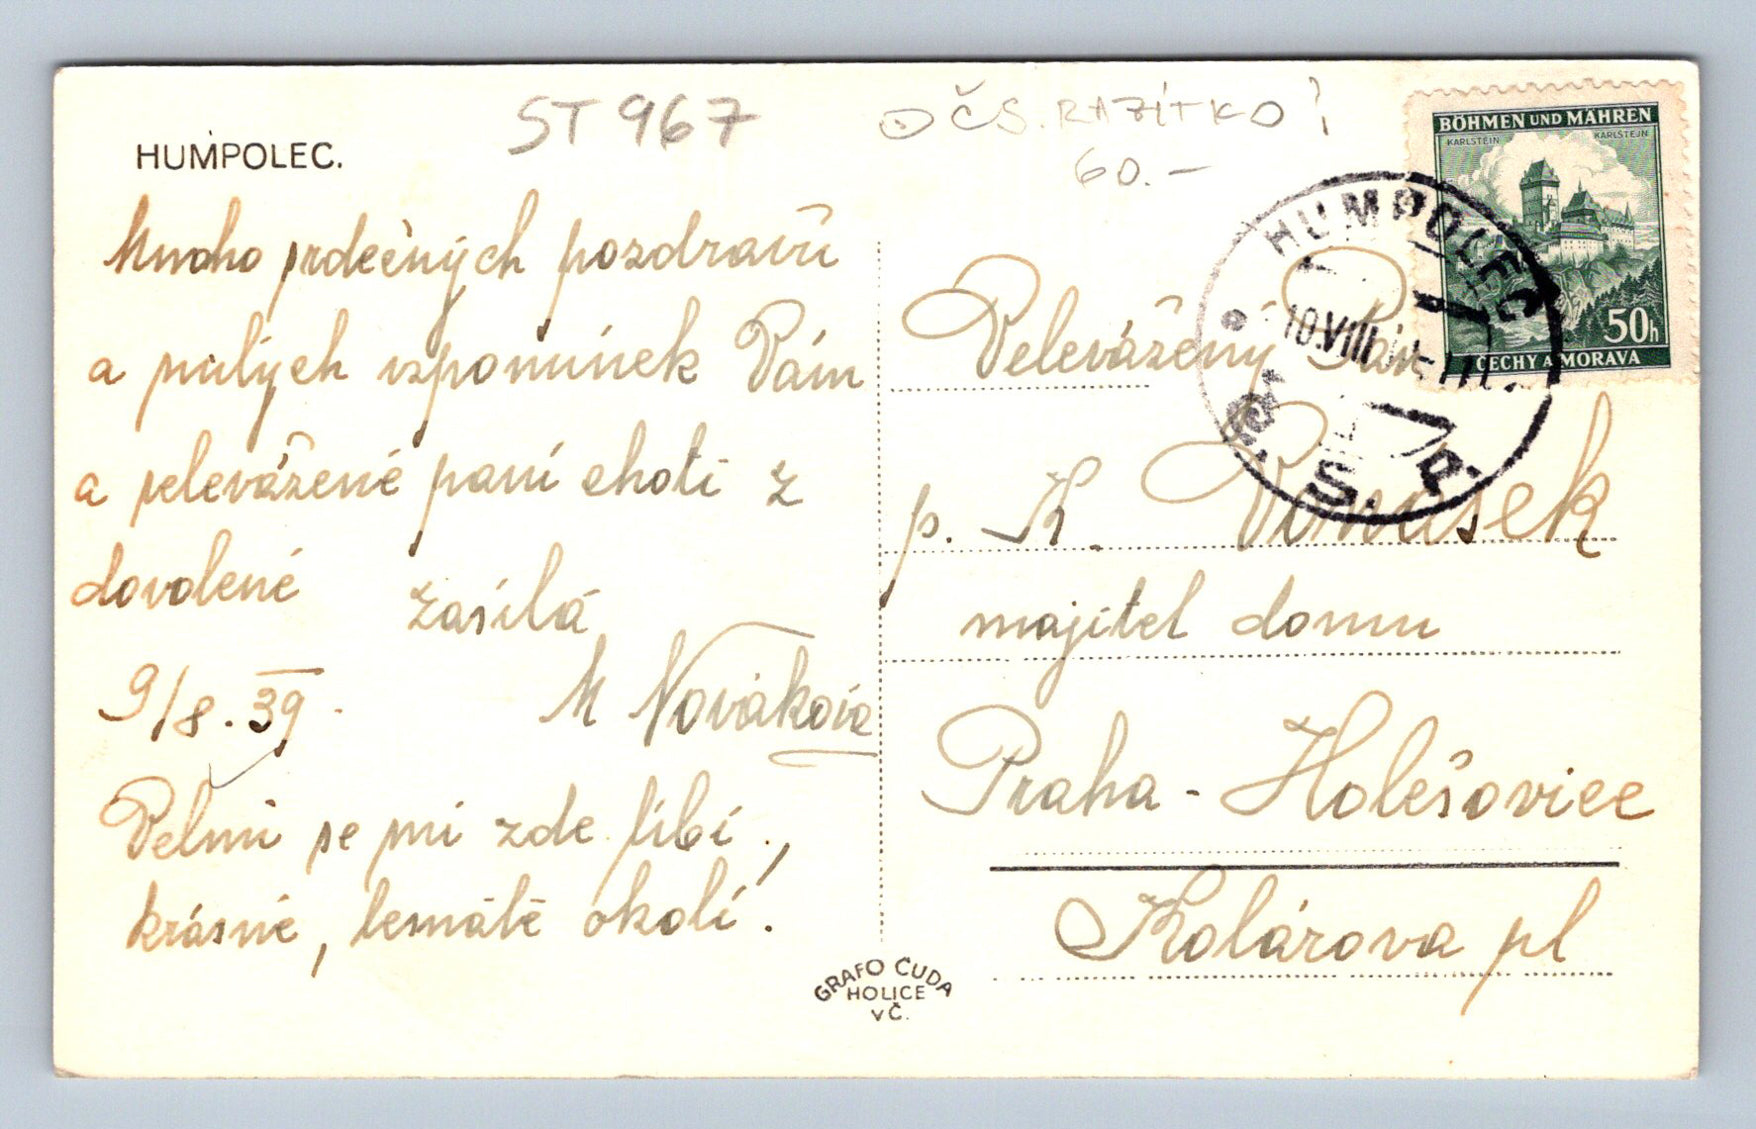 HUMPOLEC.
ST 967
ČS. RAZÍTKO!
60.-
BÖHMEN UND MÄHREN
KARLSTEIN KARLSTEJN
50h
ČECHY A MORAVA
HUMPOLEC
10.VIII
Mnoho srdečných pozdravů
a milých vzpomínek Vám
a velevážené paní choti z
dovolené zasílá
9/8.39. M Nováková
Velmi se mi zde líbí,
krásné, lesnaté okolí.
Velevážený Pán
p. K.
majitel domu
Praha - Holešovice
Kolárova pl
GRAFO ČUDA
HOLICE
v Č.